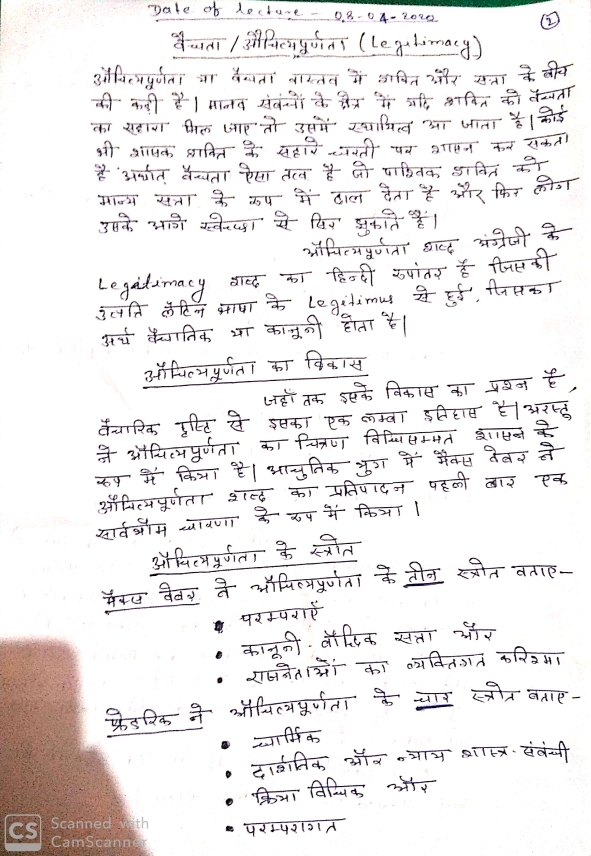 Date of lecture - 08-04-2020
(2)
वैधता / औचित्यपूर्णता (Legitimacy)
औचित्यपूर्णता या वैधता वास्तव में शक्ति और सत्ता के बीच
की कड़ी है। मानव संबंधों के क्षेत्र में यदि शक्ति को वैधता
का सहारा मिल जाए तो उसमें स्थायित्व आ जाता है। कोई
भी शासक शक्ति के सहारे धरती पर शासन कर सकता
है अर्थात् वैधता ऐसा तत्व है जो पाश्विक शक्ति को
मान्य सत्ता के रूप में ढाल देता है और फिर लोग
उसके आगे स्वेच्छा से सिर झुकाते हैं।
औचित्यपूर्णता शब्द अंग्रेजी के
Legitimacy शब्द का हिन्दी रूपांतर है जिसकी
उत्पति लैटिन भाषा के Legitimus से हुई, जिसका
अर्थ वैधानिक या कानूनी होता है।
औचित्यपूर्णता का विकास
जहाँ तक इसके विकास का प्रश्न है,
वैचारिक दृष्टि से इसका एक लम्बा इतिहास है। अरस्तु
ने औचित्यपूर्णता का चित्रण विधिसम्मत शासन के
रूप में किया है। आधुनिक युग में मैक्स वेबर ने
औचित्यपूर्णता शब्द का प्रतिपादन पहली बार एक
सार्वभौम धारणा के रूप में किया।
औचित्यपूर्णता के स्त्रोत
मैक्स वेबर ने औचित्यपूर्णता के तीन स्त्रोत बताए-
• परम्पराएँ
• कानूनी-बौद्धिक सत्ता और
• राजनेताओं का व्यक्तिगत करिश्मा
फ्रेडरिक ने औचित्यपूर्णता के चार स्त्रोत बताए-
• धार्मिक
• दार्शनिक और न्याय शास्त्र-संबंधी
• क्रिया विधिक और
• परम्परागत
CS Scanned with
CamScanner